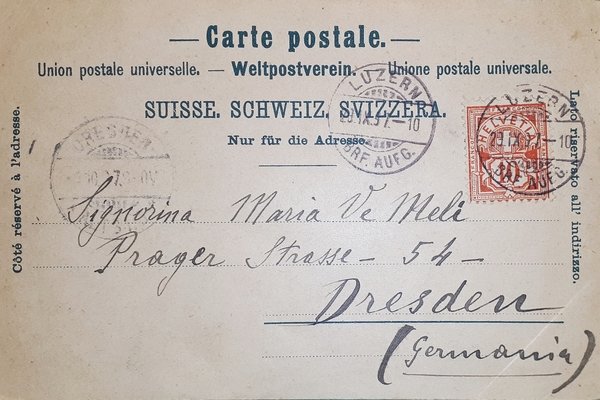 — Carte postale. —
Union postale universelle. — Weltpostverein. — Unione postale universale.
SUISSE. SCHWEIZ. SVIZZERA.
Nur für die Adresse.
Côté réservé à l'adresse.
Lato riservato all' indirizzo.
LUZERN
29.IX.97.–10
BRF. AUFG.
LUZERN
29.IX.97.–10
BRF. AUFG.
HELVETIA
10
DRESDEN
Signorina Maria Ve Meli
Prager Strasse – 54 –
Dresden
(Germania)